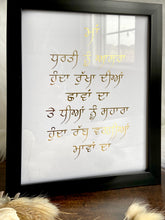 ਮਾਂ
ਧਰਤੀ ਨੂੰ
ਹੁੰਦਾ ਰੁੱਖਾ ਦੀਆਂ
ਛਾਵਾਂ ਦਾ
ਤੇ ਧੀਆਂ ਨੂੰ ਸਹਾਰਾ
ਹੁੰਦਾ ਰੱਬ ਵਰਗੀਆਂ
ਮਾਵਾਂ ਦਾ